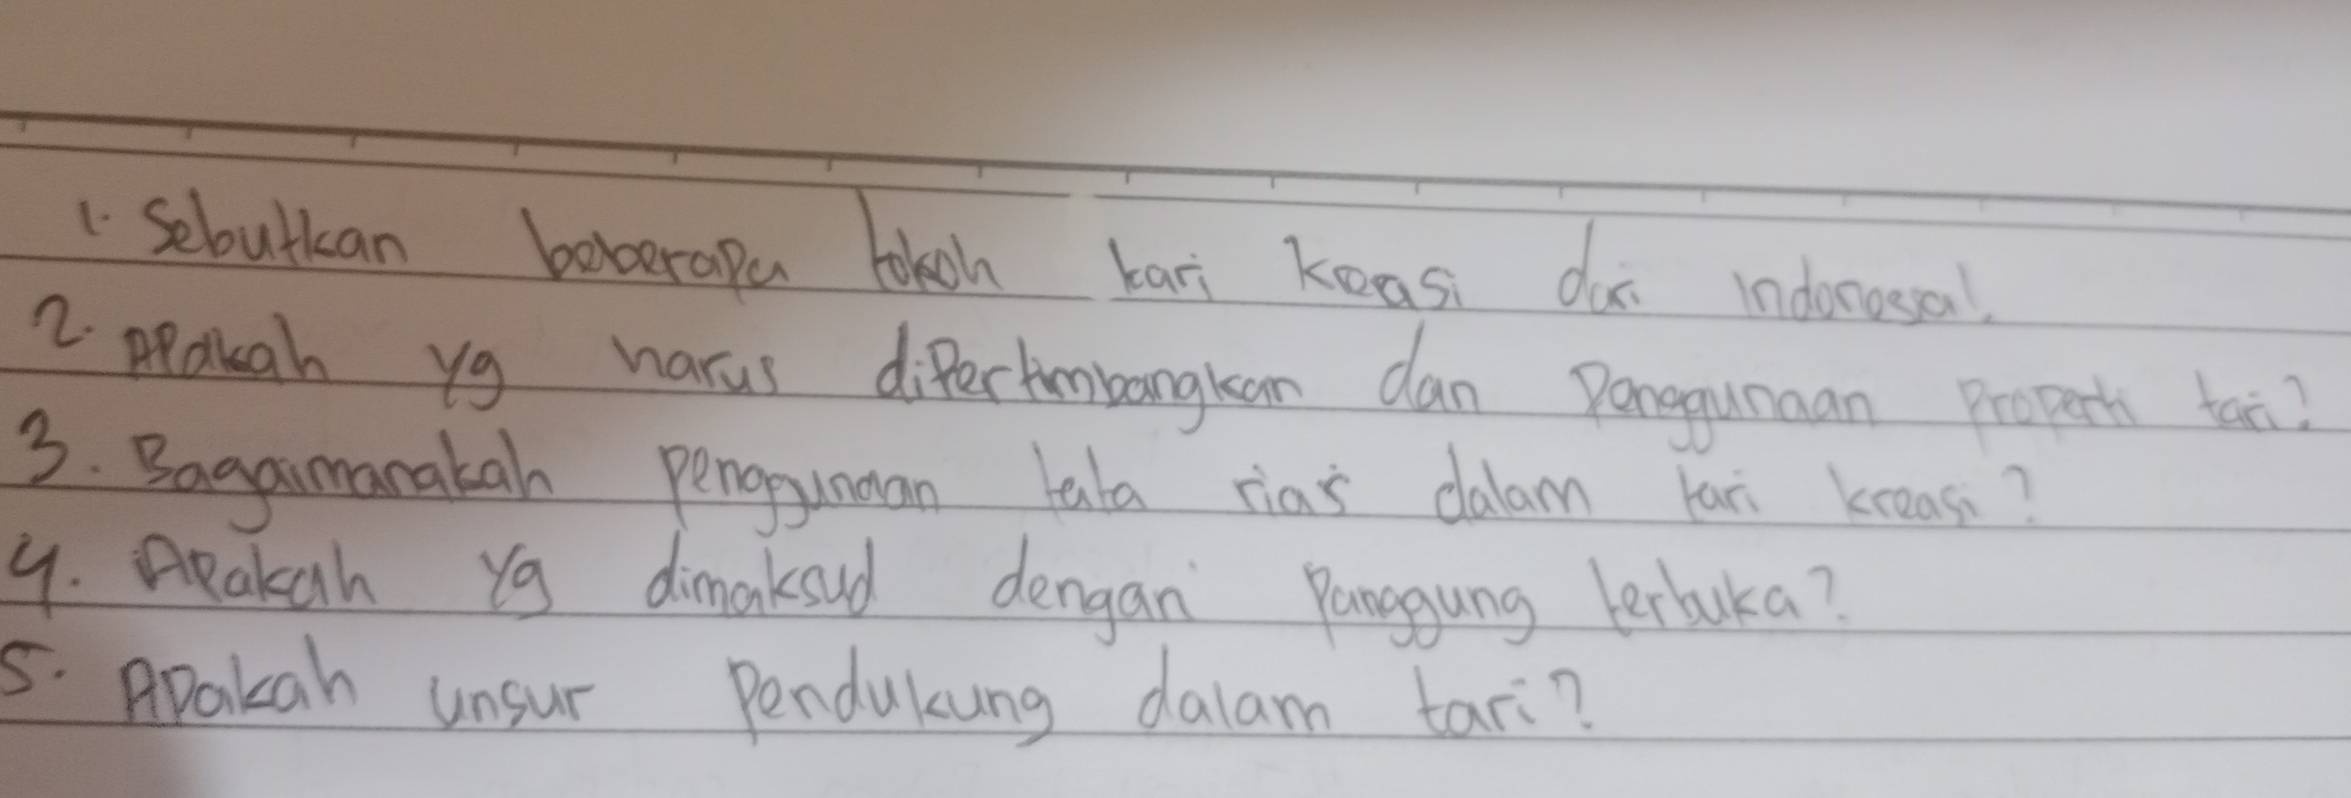 1. Sebutkan beberapa tokoh tari keasi dari indonesia!
2. Apakah yg harus dipertimbangkan dan Penggunaan Properti tari?
3. Bagaimanakah penggunaan tata rias dalam tari kreasi?
4. Apakah yg dimaksud dengan Panggung terbuka?
5. Apakah unsur Pendukung dalam tari?